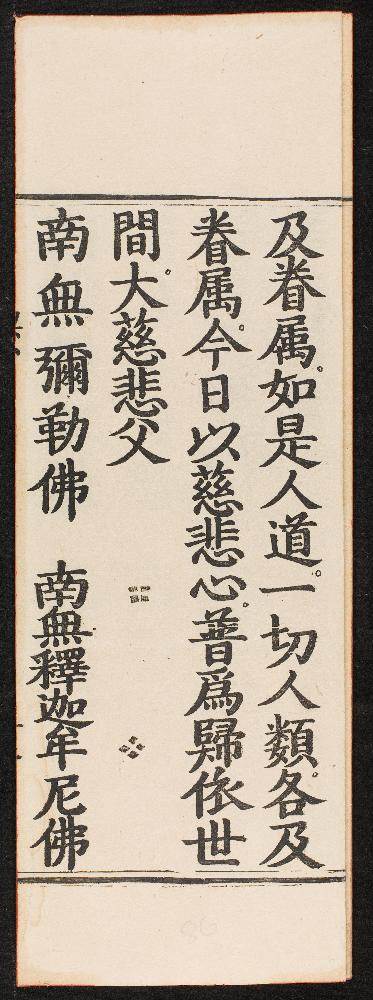 及眷属。如是人道。一切人類。各及
眷属。今日以慈悲心。普爲歸依世
間。大慈悲父
南無彌勒佛　南無釋迦牟尼佛